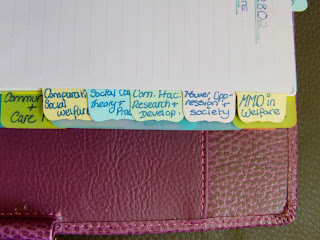 Commun
+
Care
Comparati
Social
welfure
Social
Theory +
Prac
Com. Prac.
Research +
Develop.
Power Opp-
ression +
society
MMD in
Welfare